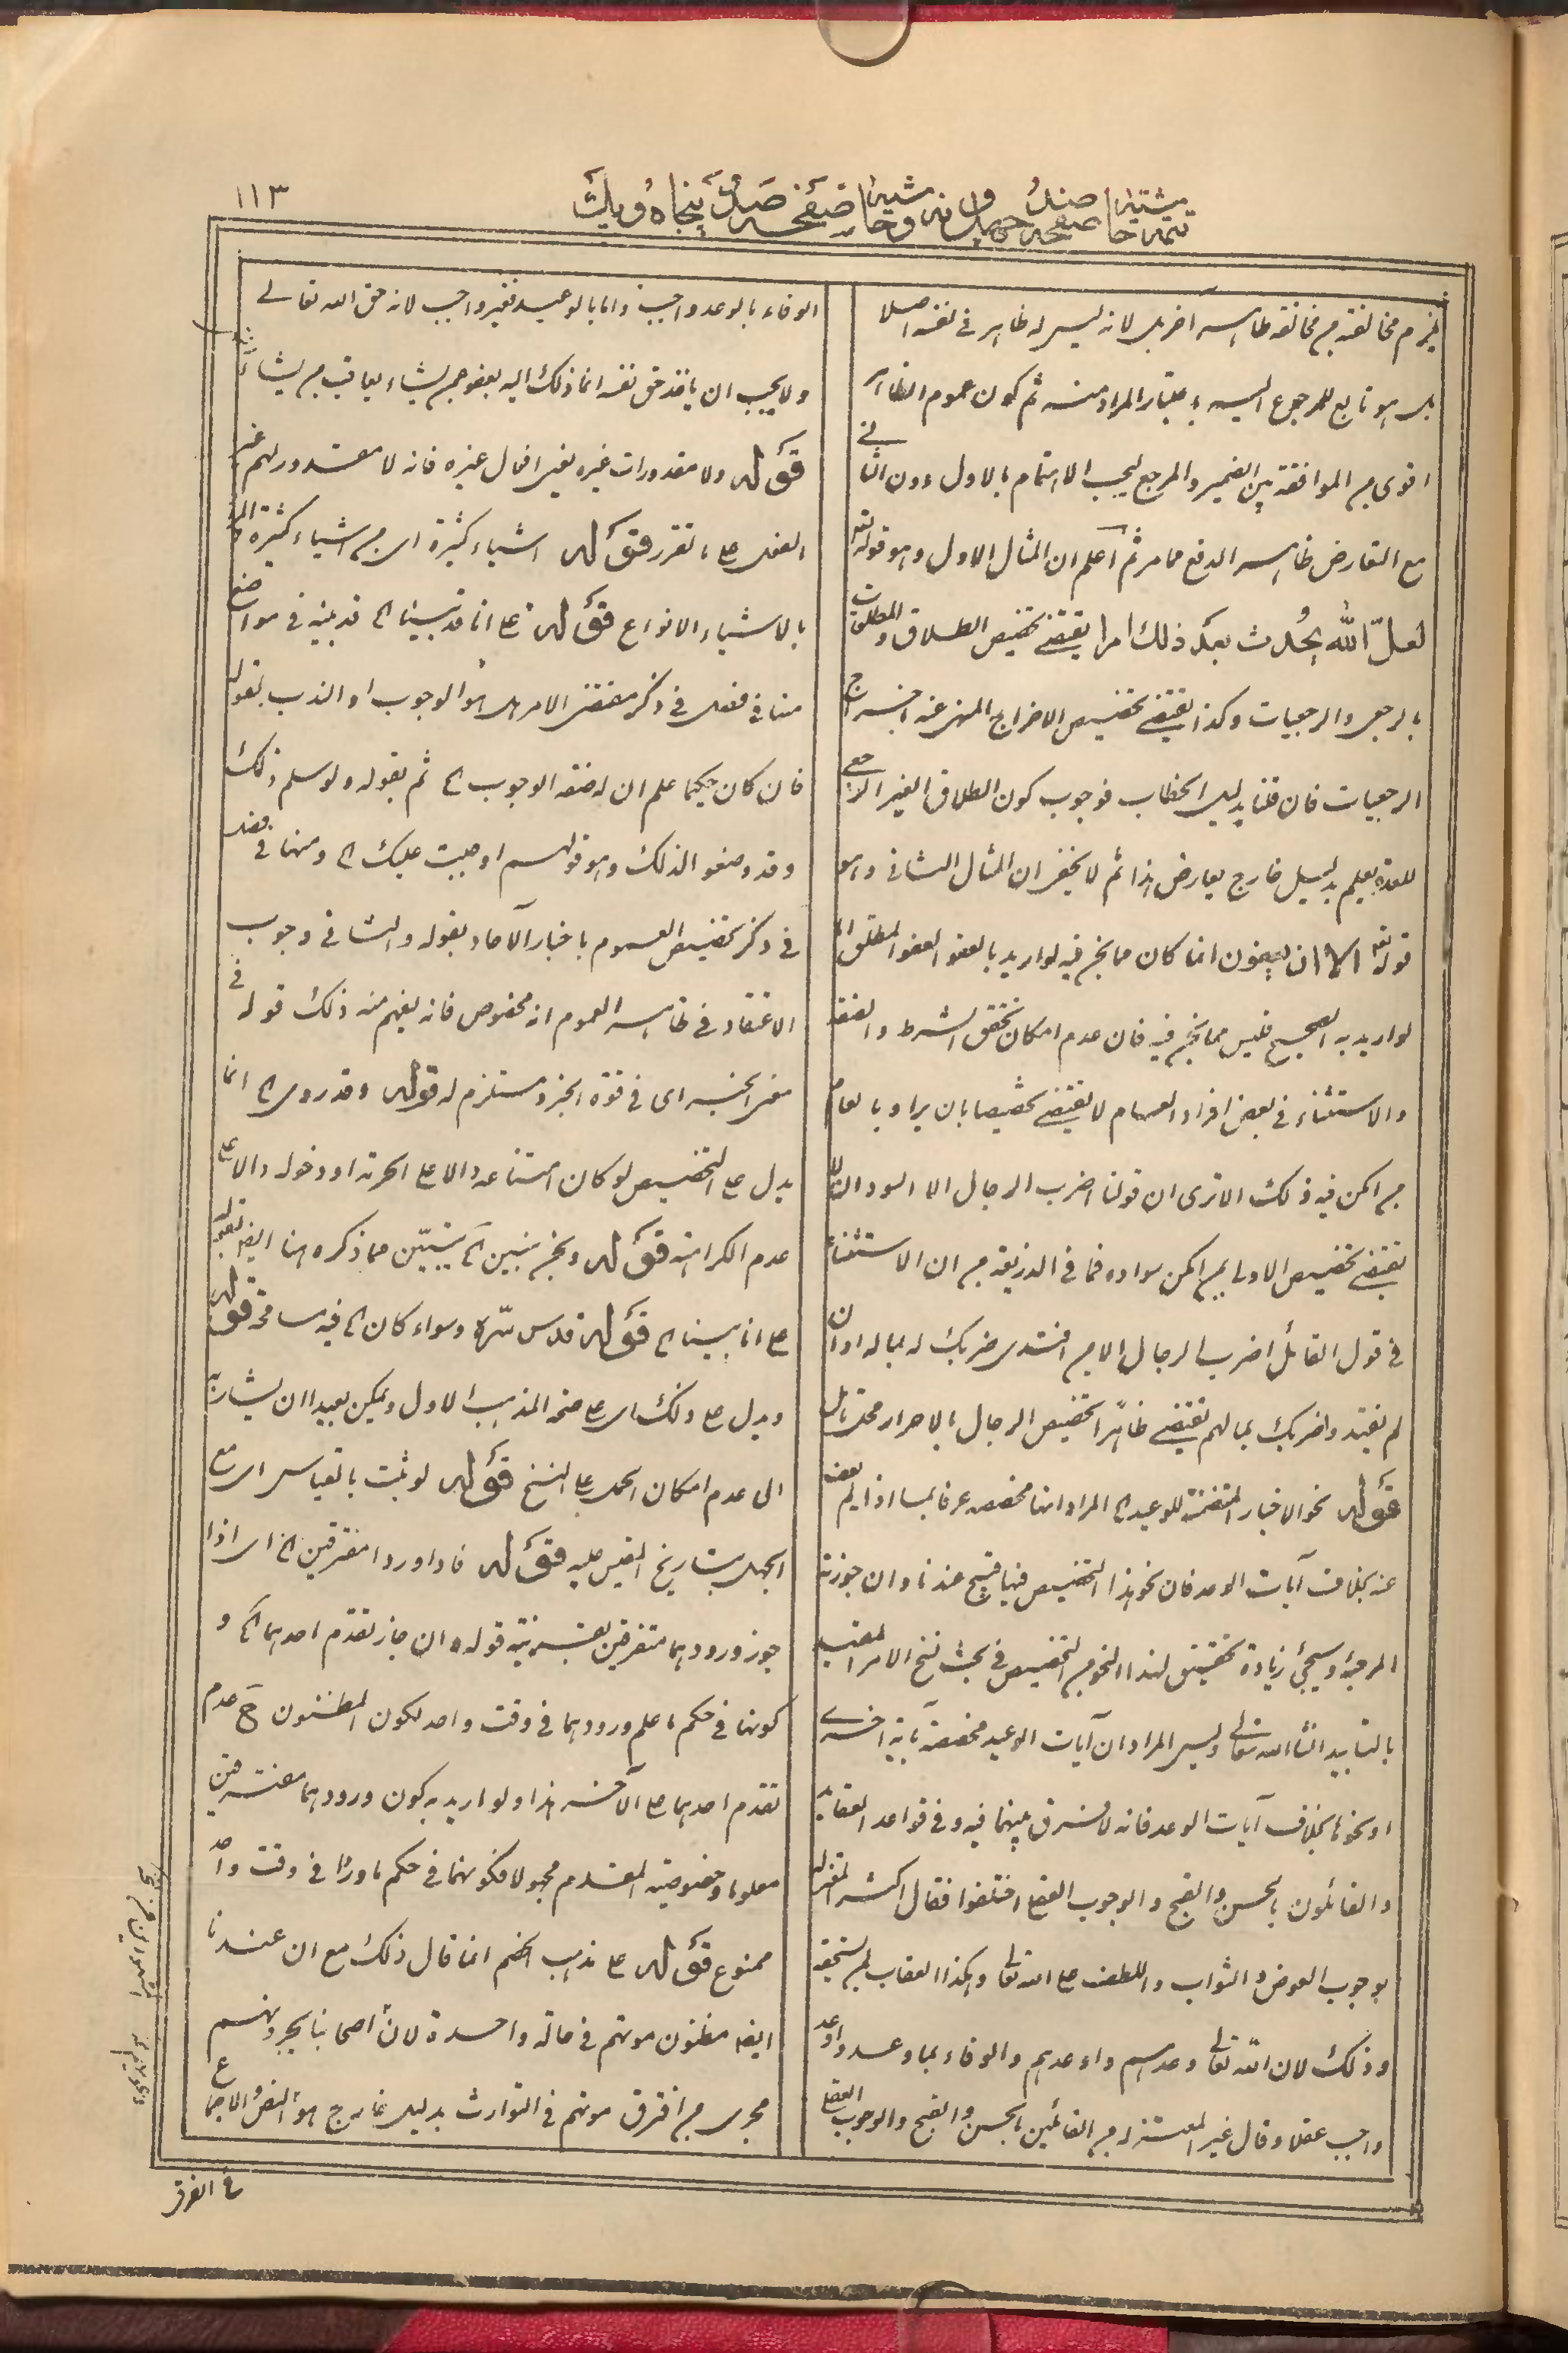 ١١٣
تتمة حاشية صفحه صد و چهل و نه و حاشية صفحه صد و پنجاه و يك
يلزم مخالفته من مخالفة ظاهر آخر بل لانه ليس له ظاهر في نفسه اصلا
بل هو تابع للمرجوع اليه باعتبار المراد منه ثم كون عموم الظاهر
اقوى من الموافقة بين الضمير والمرجع ليجب الاهتمام بالاول دون الثاني
مع التعارض ظاهر الدفع مما مر ثم اعلم ان المثال الاول وهو قوله تعه
لعلّ الله يحدث بعد ذلك امرا يقتضي تخصيص الطلاق والمطلقات
بالرجعي والرجعيات وكذا يقتضي تخصيص الاخراج المنهي عنه باخراج
الرجعيات فان قلنا بدليل الخطاب فوجوب كون الطلاق الغير الرجعي
للعدة يعلم بدليل خارج يعارض هذا ثم لا يخفى ان المثال الثاني وهو
قوله تعه الا ان يعفون انما كان مما نحن فيه لو اريد بالعفو العفو المطلق اما
لو اريد به الصحيح فليس مما نحن فيه فان عدم امكان تحقق الشرط والصفة
والاستثناء في بعض افراد العام لا يقتضي تخصيصا بان يراد بالعام
من امكن فيه ذلك الا ترى ان قولنا اضرب الرجال الا السودان لا
يقتضي تخصيص الاول بمن امكن سواده فما في الذريعة من ان الاستثناء
في قول القائل اضرب الرجال الا من افتدى ضربك له بماله او ان
لم يفتد واضربك بمالهم يقتضي ظاهرا تخصيص الرجال بالاحرار محل تامل
قوله نحو الاخبار المتضمنة للوعيد الخ المراد انها مخصصه عرفا بما اذا لم يعف
عنه بخلاف آيات الوعد فان نحو هذا التخصيص فيها قبيح عندنا وان جوزته
المرجئة وسيجئ زيادة تحقيق لهذا النحو من التخصيص في بحث نسخ الامر المقيد
بالتابيد انشاالله تعالى وليس المراد ان آيات الوعيد مخصصة بآية اخرى
او نحوها بخلاف آيات الوعد فانه لا فرق بينهما فيه وفي قواعد العقايد
والقائلون بالحسن والقبح والوجوب العقلي اختلفوا فقال اكثر المعتزلة
بوجوب العوض والثواب واللطف على الله تعالى وهكذا العقاب لمن يستحقه
وذلك لان الله تعالى وعدهم واوعدهم والوفاء بما وعد واوعد
واجب عقلا وقال غير المعتزلة من القائلين بالحسن والقبح والوجوب العقلي
الوفاء بالوعد واجب واما بالوعيد فغير واجب لانه حق الله تعالى
ولا يجب ان ياخذ حق نفسه انما ذلك اليه يعفو عمن يشاء ويعاقب من يشاء
قوله ولا مقدورات غيره يعني افعال غيره فانه لا مقدور لهم غير
الفعل على ما تقرر قوله اشياء كثيرة اي من اشياء كثيرة والمراد
بالاشياء الانواع قوله على انا قد بينا الخ قد بينه في مواضع
منها في فصل في ذكر مقتضى الامر هل هو الوجوب او الندب بقوله
فان كان حكيما علم ان له صفة الوجوب الخ ثم بقوله ولو سلم ذلك
وقد وضعوا لذلك وهو قولهم اوجبت عليك الخ ومنها في فصل
في ذكر تخصيص العموم باخبار الآحاد بقوله والثاني وجوب
الاعتقاد في ظاهر العموم انه مخصوص فانه يفهم منه ذلك قوله في
معنى الخبر اى في قوة الخبر ومستلزم له قوله وقد روى الخ انما
يدل على التخصيص لو كان امتناعه دالا على الحرمة او دخوله دالا على
عدم الكراهة قوله ونحن نبين الخ يتبيّن مما ذكره هنا ايضا بقوله
على انا بينا الخ قوله قدس سّره وسواء كان الخ فيه مسامحة قوله
ويدل على ذلك اى على صحة المذهب الاول ويمكن بعيدا ان يشار به
الى عدم امكان الحمل على النسخ قوله لو ثبت بالقياس اى مع
الجهل بتاريخ المقيس عليه قوله فاذا وردا مفترقين الخ اى اذا
جوز ورودهما متفرقين بقرينة قوله وان جاز تقدم احدهما الخ و
كونها في حكم ما علم ورودهما في وقت واحد لكون المظنون ح عدم
تقدم احدهما على الآخر هذا ولو اريد به كون ورودهما مفترقين
معلوما وخصوصية المقدم مجهولا فكونهما في حكم ما وردا في وقت واحد
ممنوع قوله على مذهب الخصم انما قال ذلك مع ان عندنا
ايضا مظنون موتهم في حالة واحدة لان اصحابنا يجرونهم
مجرى من افترق موتهم في التوارث بدليل خارج هو النص والاجماع